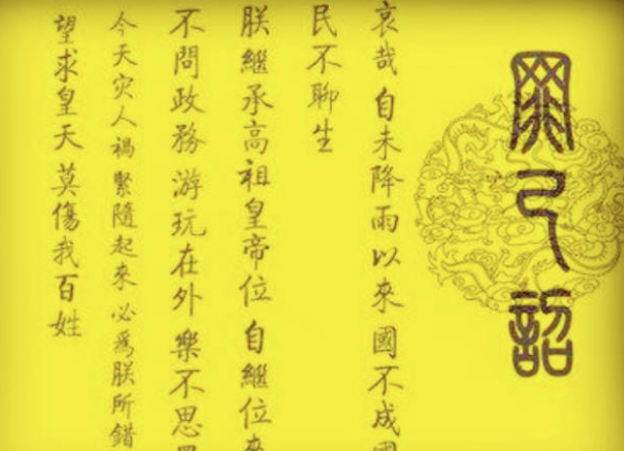 罪己詔
哀哉自未降雨以來國不成國
民不聊生
朕繼承高祖皇帝位自繼位來
不問政務游玩在外樂不思
今天灾人禍緊隨起來必爲朕所錯
望求皇天莫傷我百姓